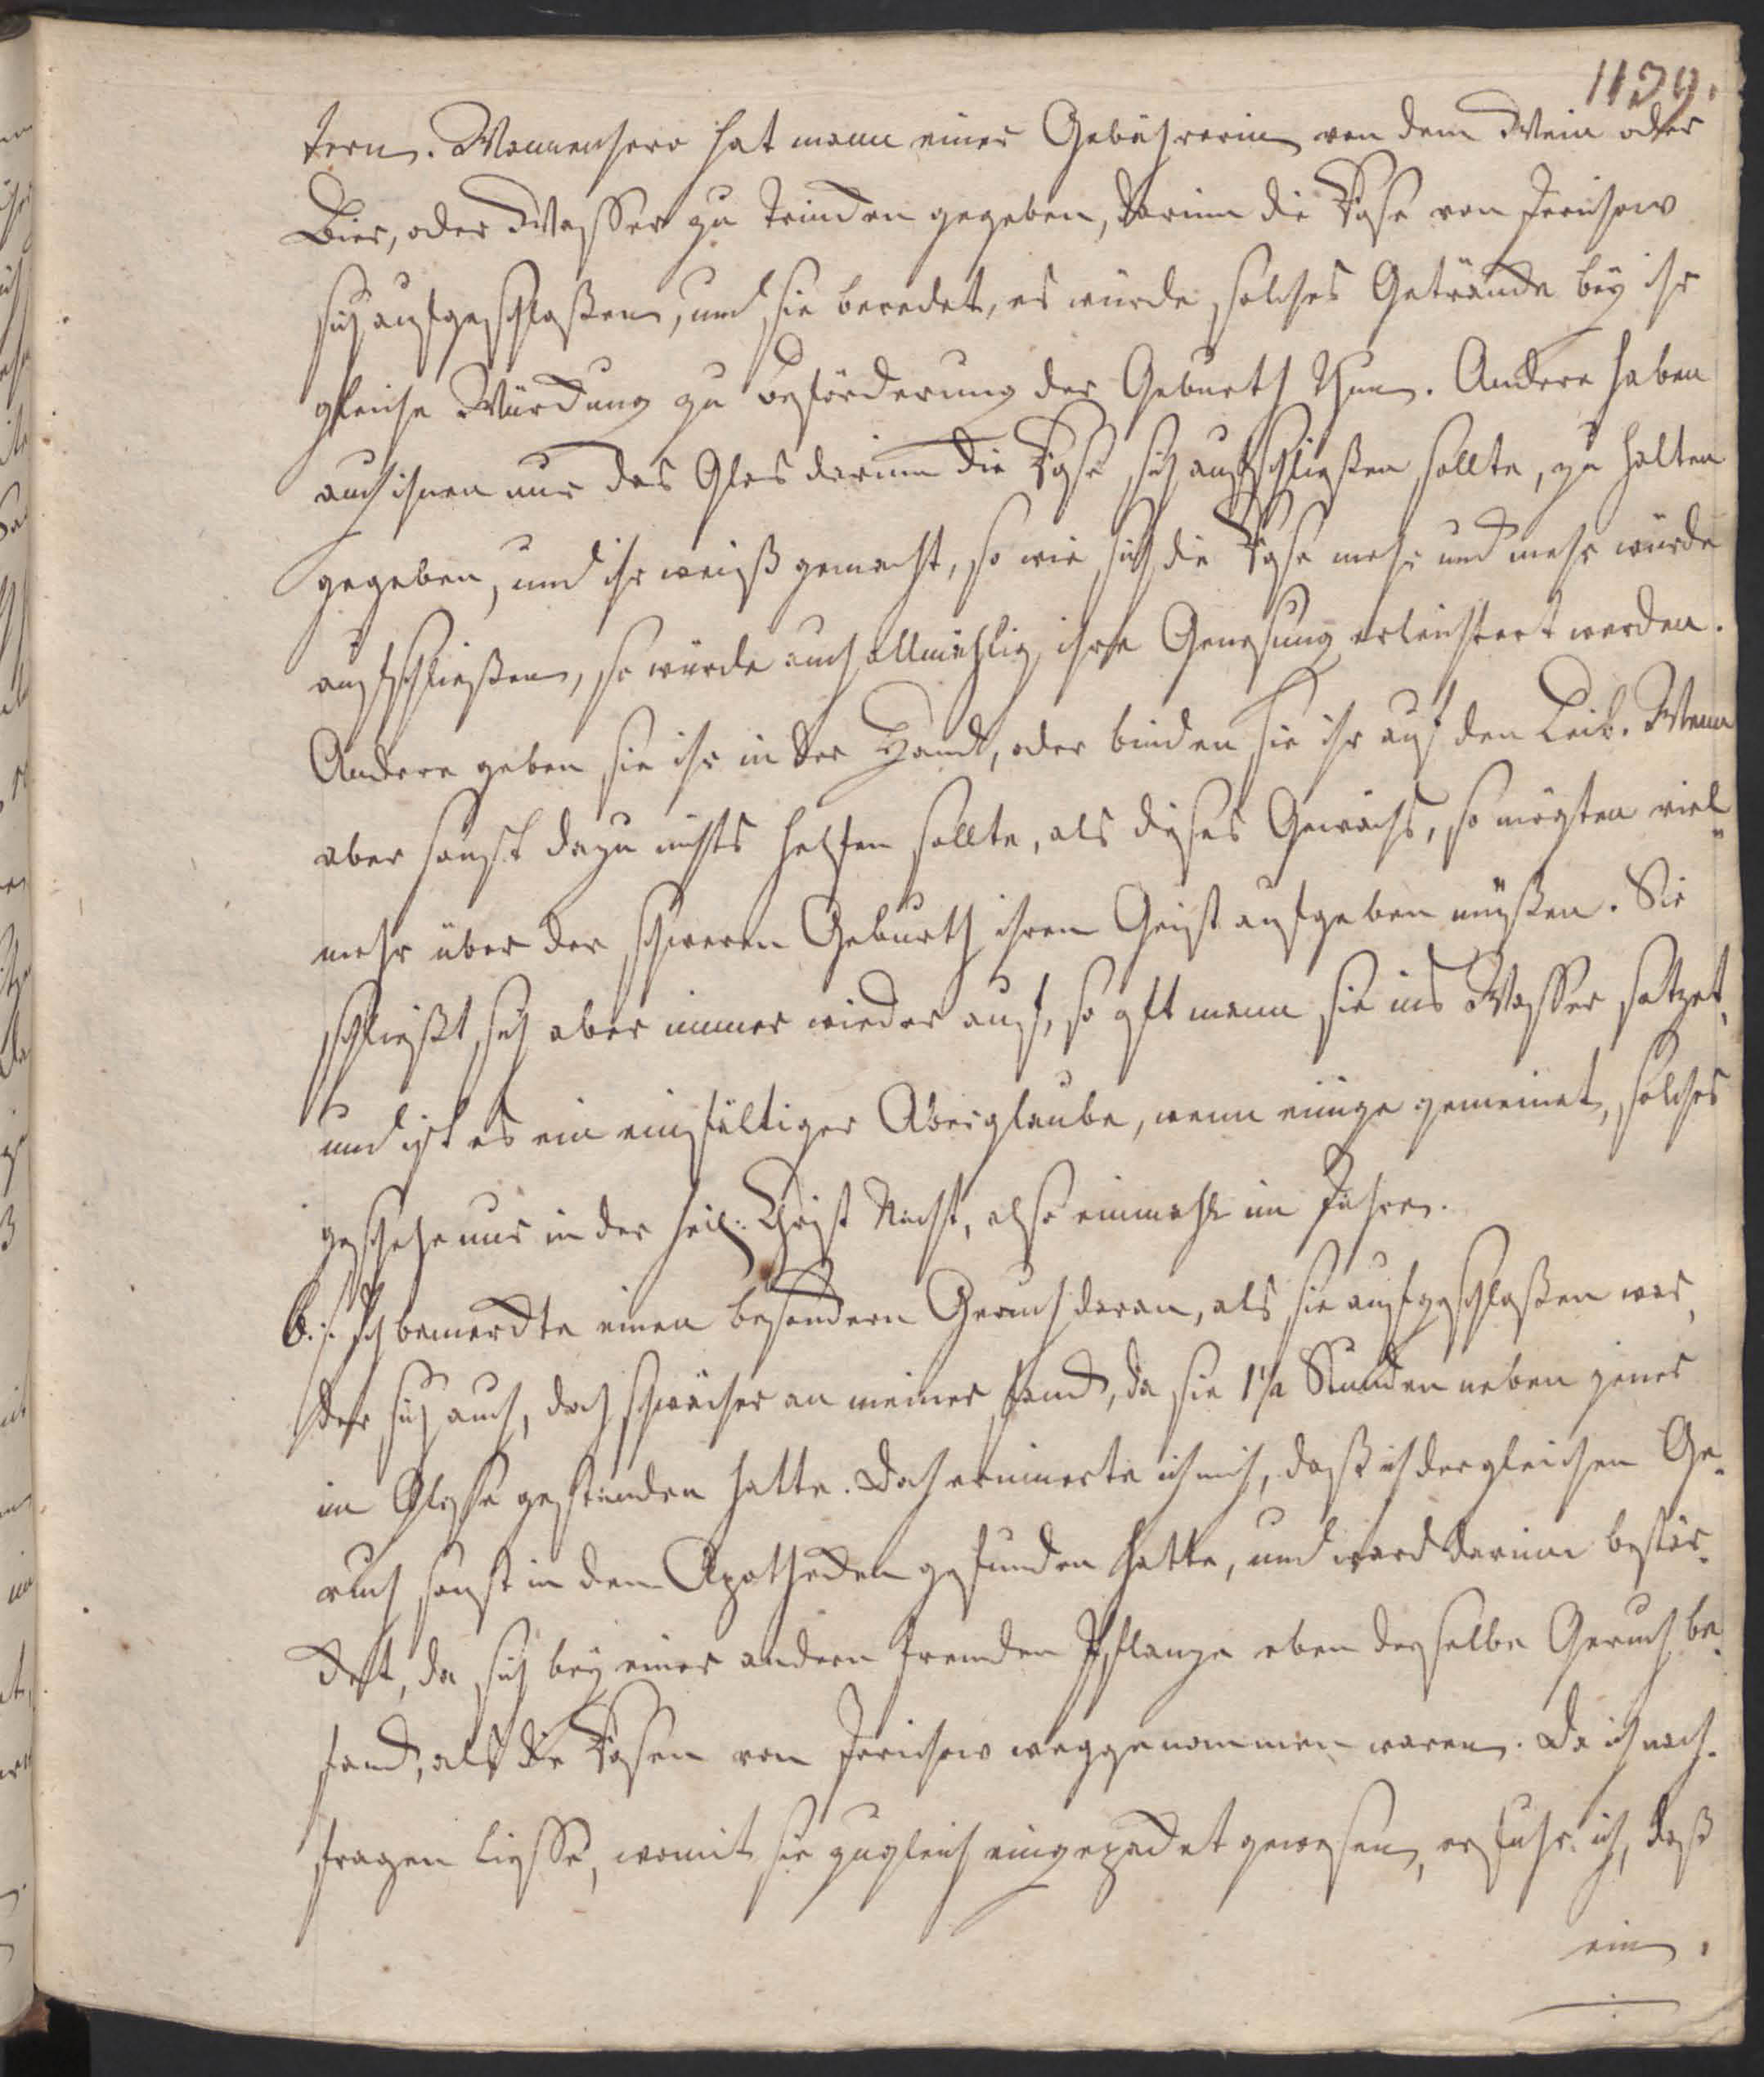 1139.
tern. Wannenhero hat mann einer Gebährerin von dem Wein oder
Bier, oder Wasser zu trincken gegeben, darinn die Rose von Jerichow
sich aufgeschloßen, und sie beredet, es würde solches Geträncke bey ihr
gleiche Würckung zu Beförderung der Geburth thun. Andere haben
auch ihnen nur das Glas darinn die Rose sich aufschließen sollte, zu halten
gegeben, und ihr weiß gemacht, so wie sich die Rose mehr und mehr würde
aufschließen, so würde auch allmählig ihre Genesung erleichtert werden.
Andere geben sie ihr in der Hand, oder binden sie ihr auf den Leib. Wenn
aber sonst dazu nichts helfen sollte, als dieses Gewächs, so mögten viel-
mehr über der schweren Geburth ihren Geist aufgeben müßen. Sie
schließt sich aber immer wieder auf, so oft mann sie ins Wasser setzet,
und ist es ein einfältiger Aberglaube, wenn einige gemeinet, solches
geschehe nur in der heil: Christ Nacht, also einmahl im Jahre.
6.:. Ich bemerckte einen besondern Geruch daran, als sie aufgeschloßen war,
der sich auch, doch schwächer an meiner fand, da sie 1 1/2 Stunden neben jener
im Glase gestanden hatte. Doch erinnerte ich mich, daß ich dergleichen Ge-
ruch sonst in den Apothecken gefunden hatte, und ward darinn bestär-
cket, da sich bey einer andern fremden Pflanze eben derselbe Geruch be-
fand, als die Rosen von Jerichow weggenommen waren. Da ich nach-
fragen liesse, womit sie zugleich eingepacket gewesen, erfuhr ich, daß
ein